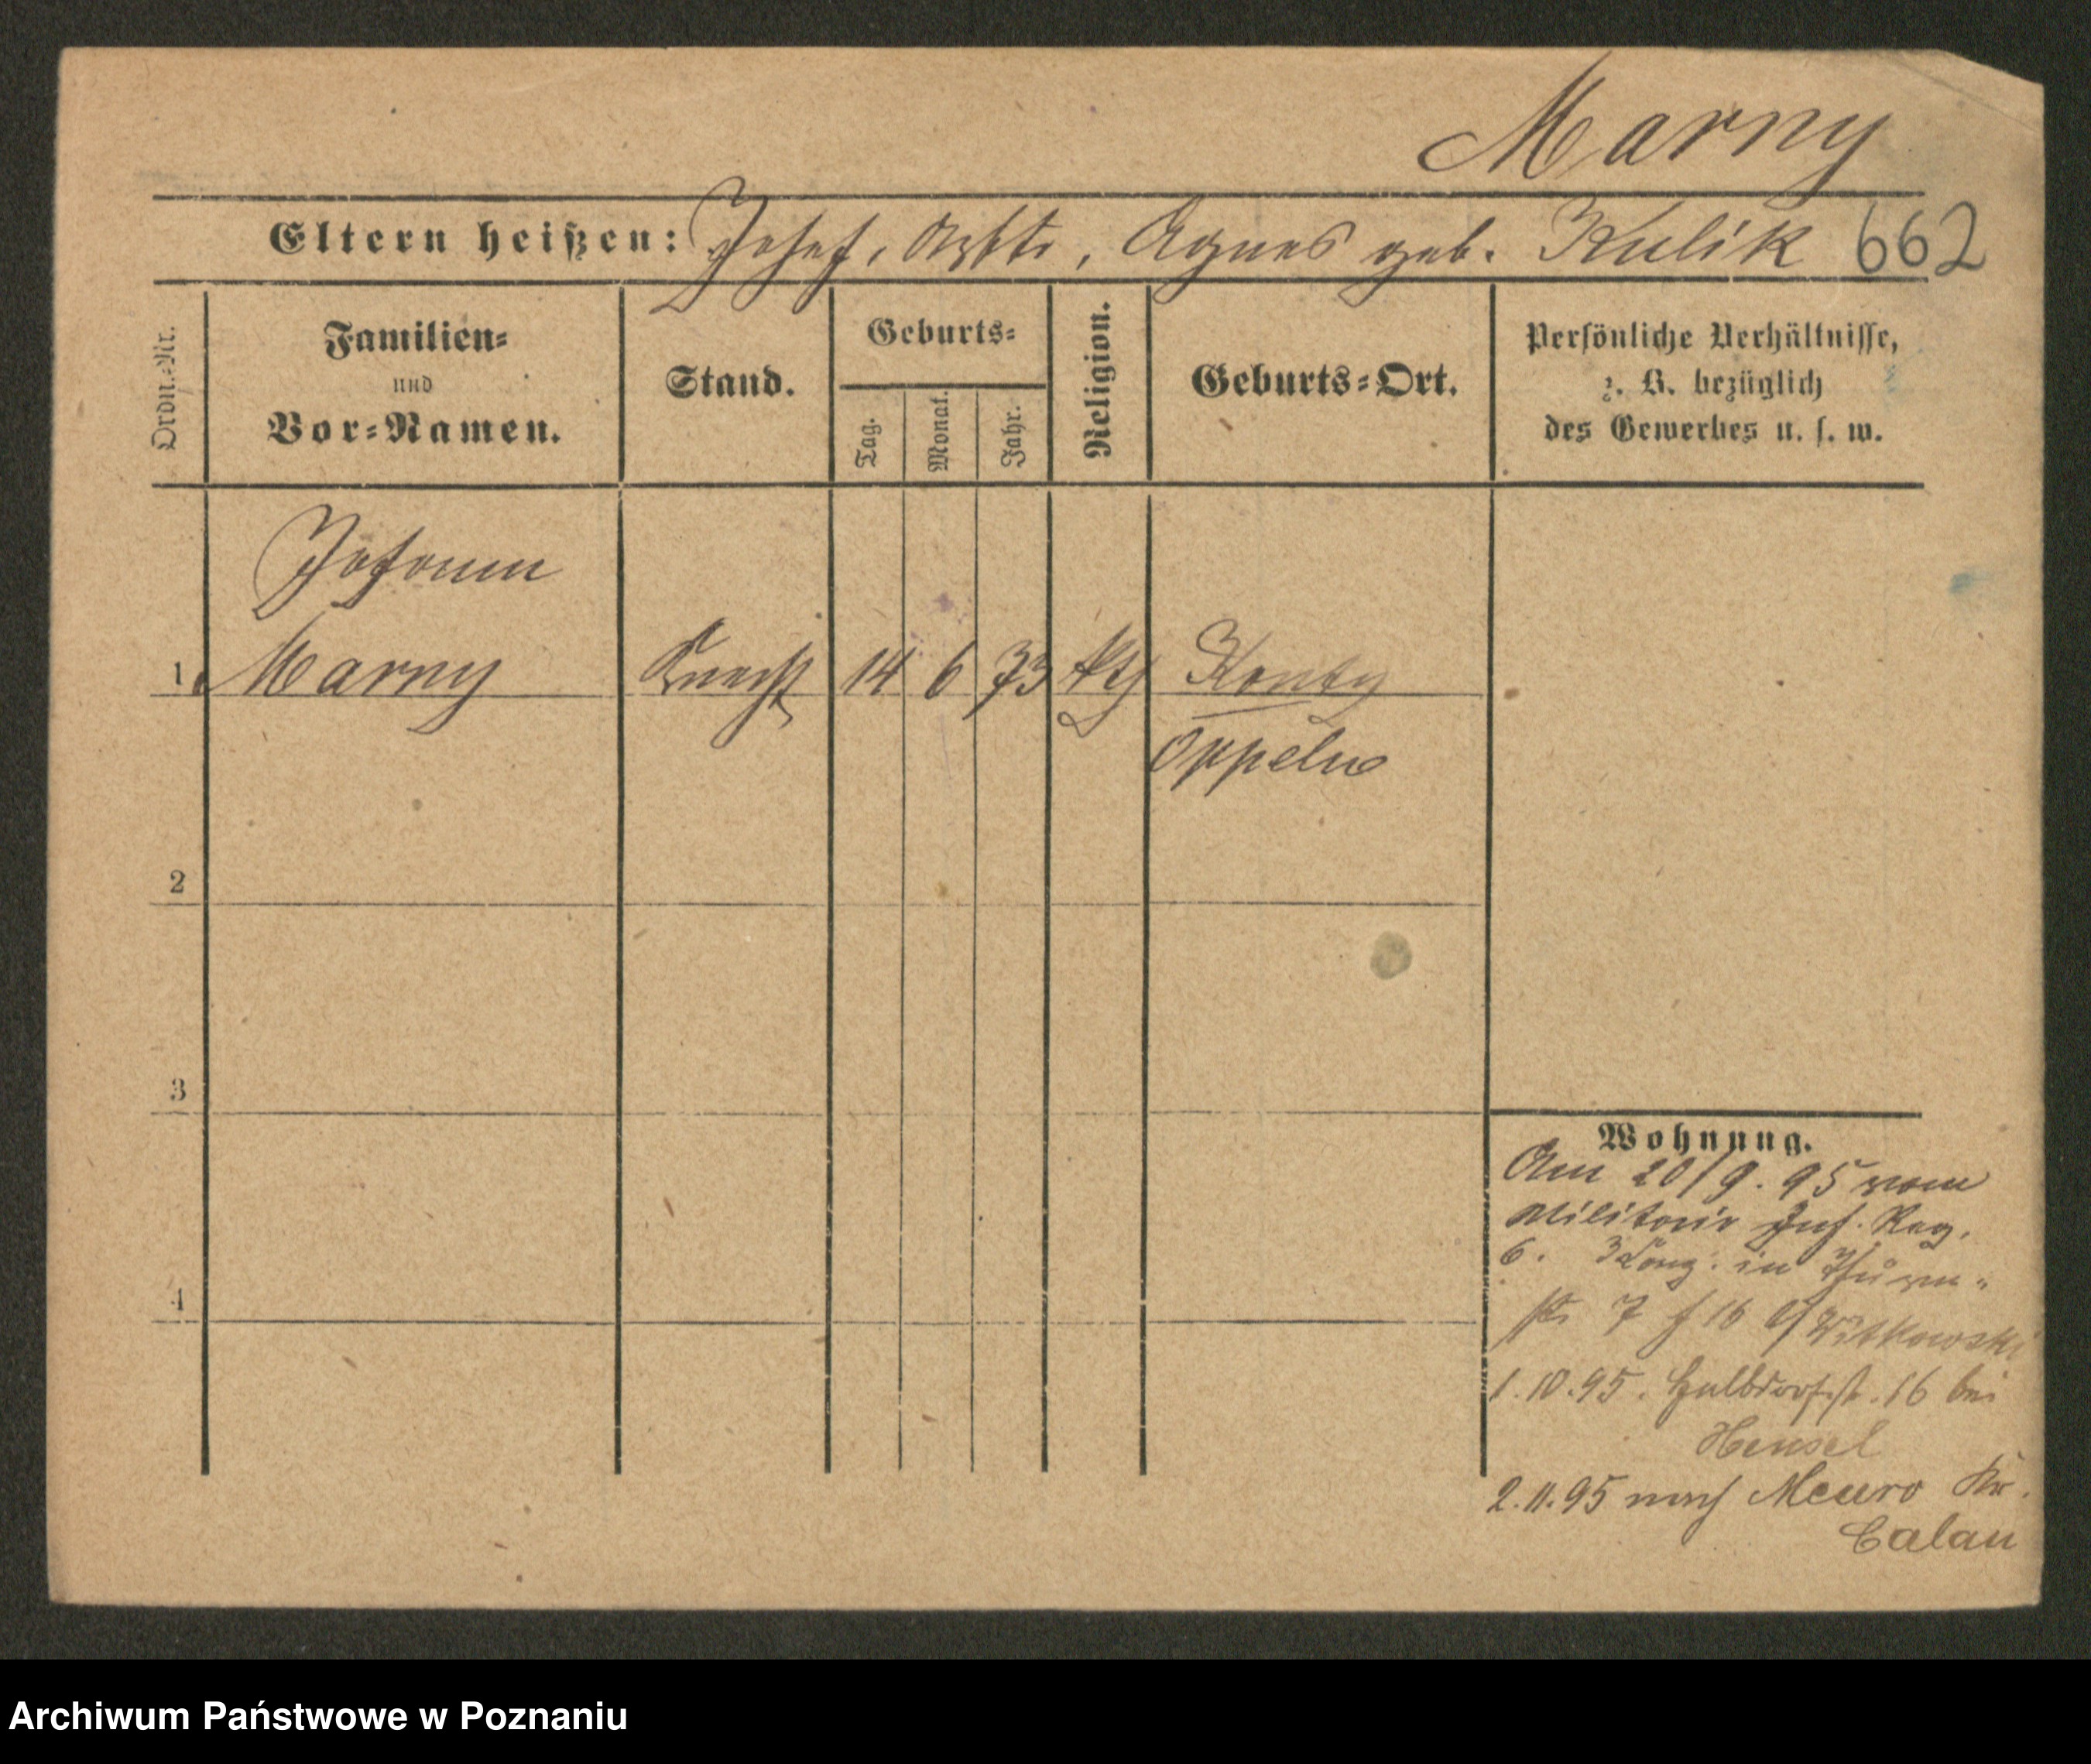 Marny
Eltern heißen: Josef, Agnes geb. Kulik 662
Ordn.-Nr.
Familien-
und
Vor-Namen.
Stand.
Geburts-
Tag.
Monat.
Jahr.
Religion.
Geburts-Ort.
Persönliche Verhältnisse,
z. B. bezüglich
des Gewerbes u. s. w.
Johann
1 Marny Knecht 14 6 73 kth
Oppeln
2
3
4
Wohnung.
Am 20/9. 95 vom
Militair Inf. Reg.
6. in
7 16 Witkowski
1.10.95. Halbdorfstr. 16 bei
Hensel
2.11.95 nach Meuro Kr.
Calau
Archiwum Państwowe w Poznaniu